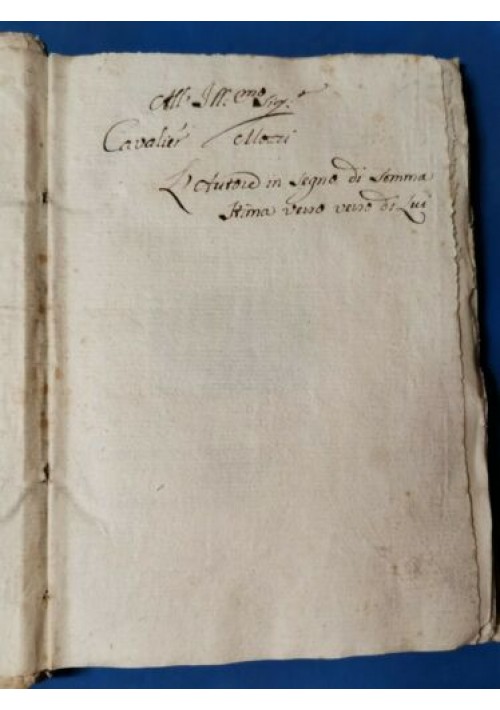 All' Ill.mo Sig.r
Cavalier
L'Autore in segno di somma
stima verso verso di Lui